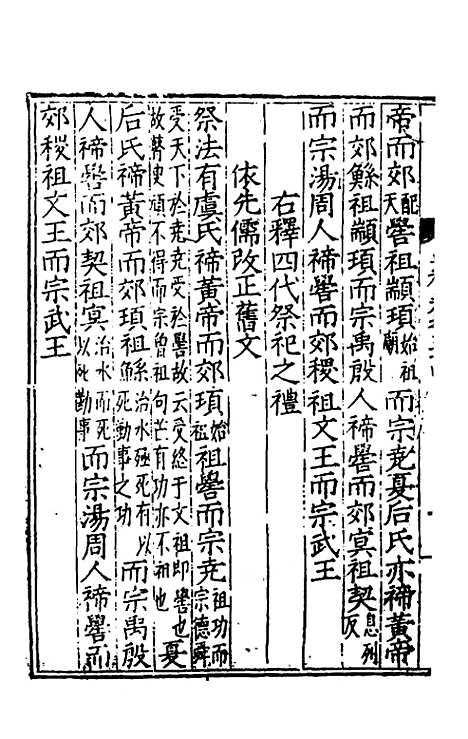 帝而郊配天嚳祖顓頊始祖廟而宗堯夏后氏亦禘黃帝
而郊鯀祖顓頊而宗禹殷人禘嚳而郊冥祖契息列反
而宗湯周人禘嚳而郊稷祖文王而宗武王
右釋四代祭祀之禮
依先儒改正舊文
祭法有虞氏禘黃帝而郊頊始祖祖嚳而宗堯祖功而宗德舜
受天下於堯堯受於嚳故云受終于文祖即嚳也
故瞽叟頑不得而宗曾祖句芒有功亦不祖也夏
后氏禘黃帝而郊頊祖鯀治水殛死有以死勤事之功而宗禹殷
人禘嚳而郊契祖冥治水而死以死勤事而宗湯周人禘嚳而
郊稷祖文王而宗武王